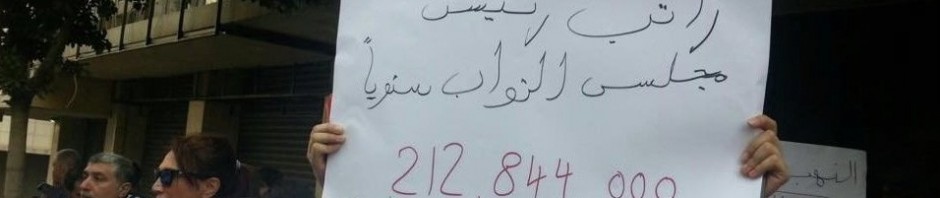 راتب رئيس
مجلس النواب سنوياً
212,844,000
النهب